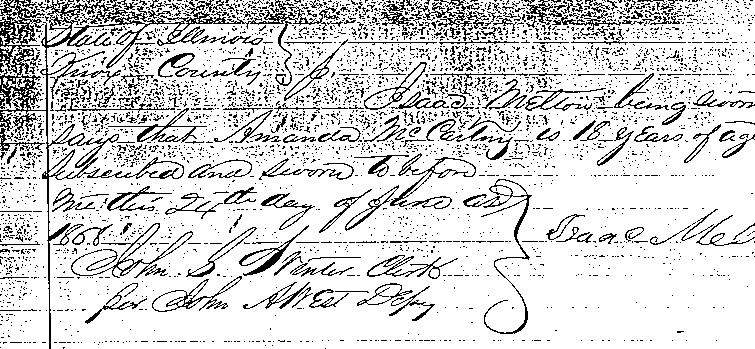 State of Illinois
Knox County } ss.
Isaac Melton being sworn
says that Amanda McCartny is 18 years of ag
subscribed and sworn to before
me this 24th day of June AD
1868
Isaac Mel
John S. Winter Clerk
per John A West Depy